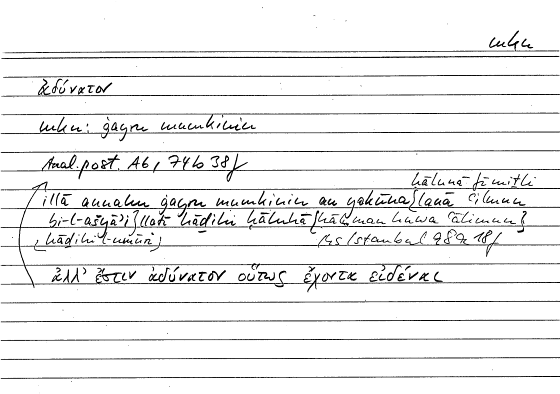 mkn
ἀδύνατον
mkn: ġayru mumkinin
Anal. post. A6, 74b 38f
ḥālunā fī miṯli
illā annahu ġayru mumkinin an yakūna {lanā ʿilmun
bi-l-ašyāʾi} llatī hāḏihi ḥāluhā {ḥāla man huwa ʿālimun}
(hāḏihi l-umūri)
Ms Istanbul 98a 18f
ἀλλ’ ἔστιν ἀδύνατον οὕτως ἔχοντα εἰδέναι